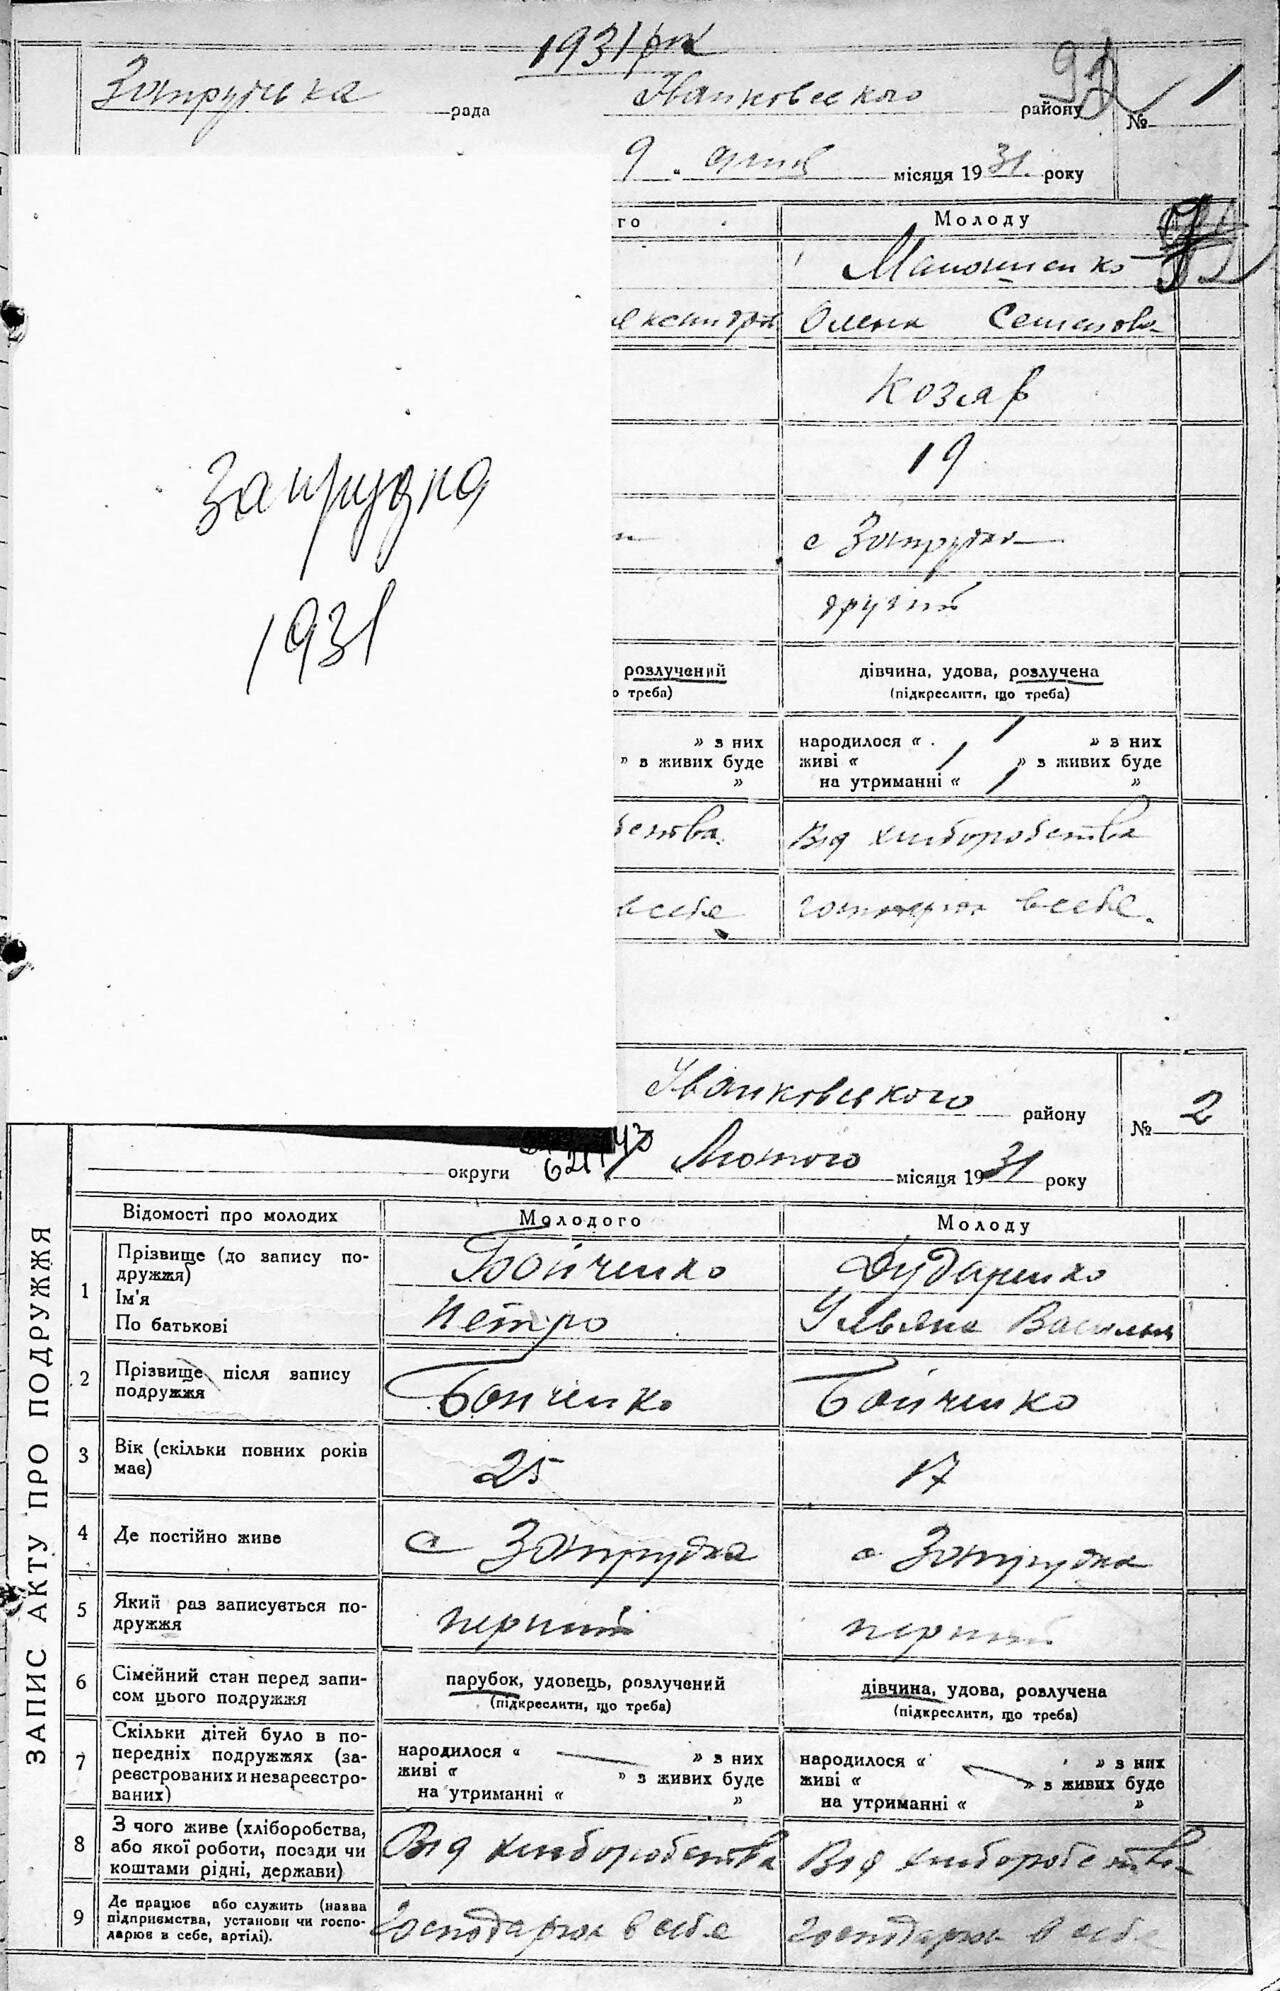 1931 рік
Запрудська рада Іванковського району № 1
92
9 місяця 1931 року
го Молоду
Олена Семенова
Козяр
19
Запрудка
1931
с Запрудка
другий
розлучений дівчина, удова, розлучена
о треба) (підкреслити, що треба)
» з них народилося « 1 » з них
» з живих буде живі « 1 » з живих буде
» на утриманні « 1 »
бства. Від хліборобства
в себе господарює в себе.
Іванковського району № 2
округи Лютого місяця 1931 року
ЗАПИС АКТУ ПРО ПОДРУЖЖЯ
Відомості про молодих Молодого Молоду
1 Прізвище (до запису по-
дружжя) Бойченко Дударенко
Ім'я
По батькові Петро Ульяна Васильы
2 Прізвище після запису
подружжя Бойченко Бойченко
3 Вік (скільки повних років
має) 25 17
4 Де постійно живе с Запрудка с Запрудка
5 Який раз записується по-
дружжя перший перший
6 Сімейний стан перед запи-
сом цього подружжя парубок, удовець, розлучений дівчина, удова, розлучена
(підкреслити, що треба) (підкреслити, що треба)
7 Скільки дітей було в по-
передніх подружжях (за-
реєстрованих и незареєстро-
ваних) народилося « » з них народилося « » з них
живі « » з живих буде живі « » з живих буде
на утриманні « » на утриманні « »
8 З чого живе (хліборобства,
або якої роботи, посади чи
коштами рідні, держави) Від хліборобства Від хліборобства
9 Де працює або служить (назва
підприємства, установи чи госпо-
дарює в себе, артілі). Господарює в себе Господарює в себе